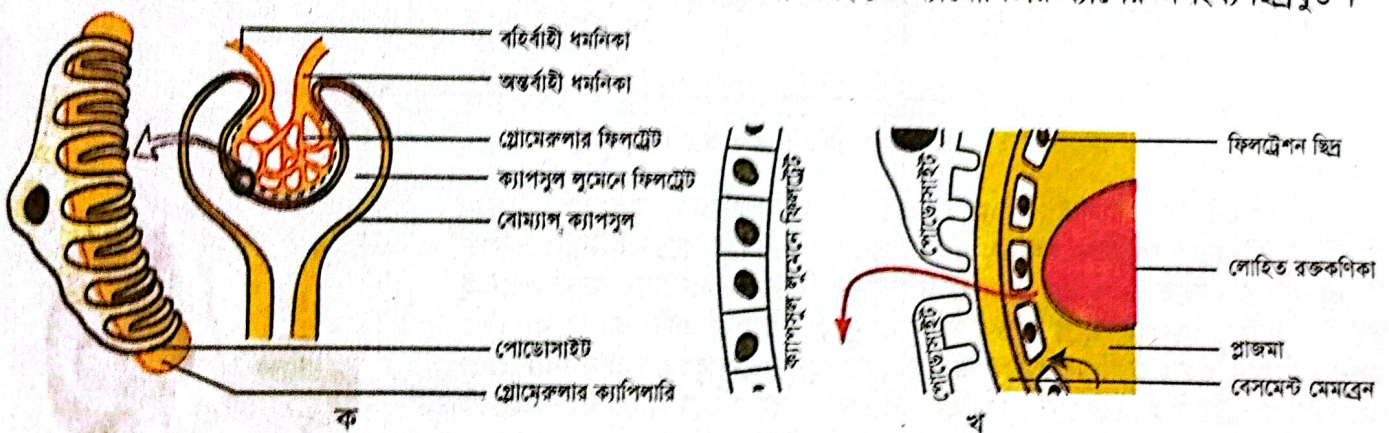 বহির্বাহী ধমনিকা
অন্তর্বাহী ধমনিকা
গ্লোমেরুলার ফিলট্রেট
ক্যাপসুল লুমেনে ফিলট্রেট
বোম্যান্স ক্যাপসুল
পোডোসাইট
গ্লোমেরুলার ক্যাপিলারি
ক
ক্যাপসুল লুমেনে ফিলট্রেট
পোডোসাইট
পোডোসাইট
ফিলট্রেশন ছিদ্র
লোহিত রক্তকণিকা
প্লাজমা
বেসমেন্ট মেমব্রেন
খ